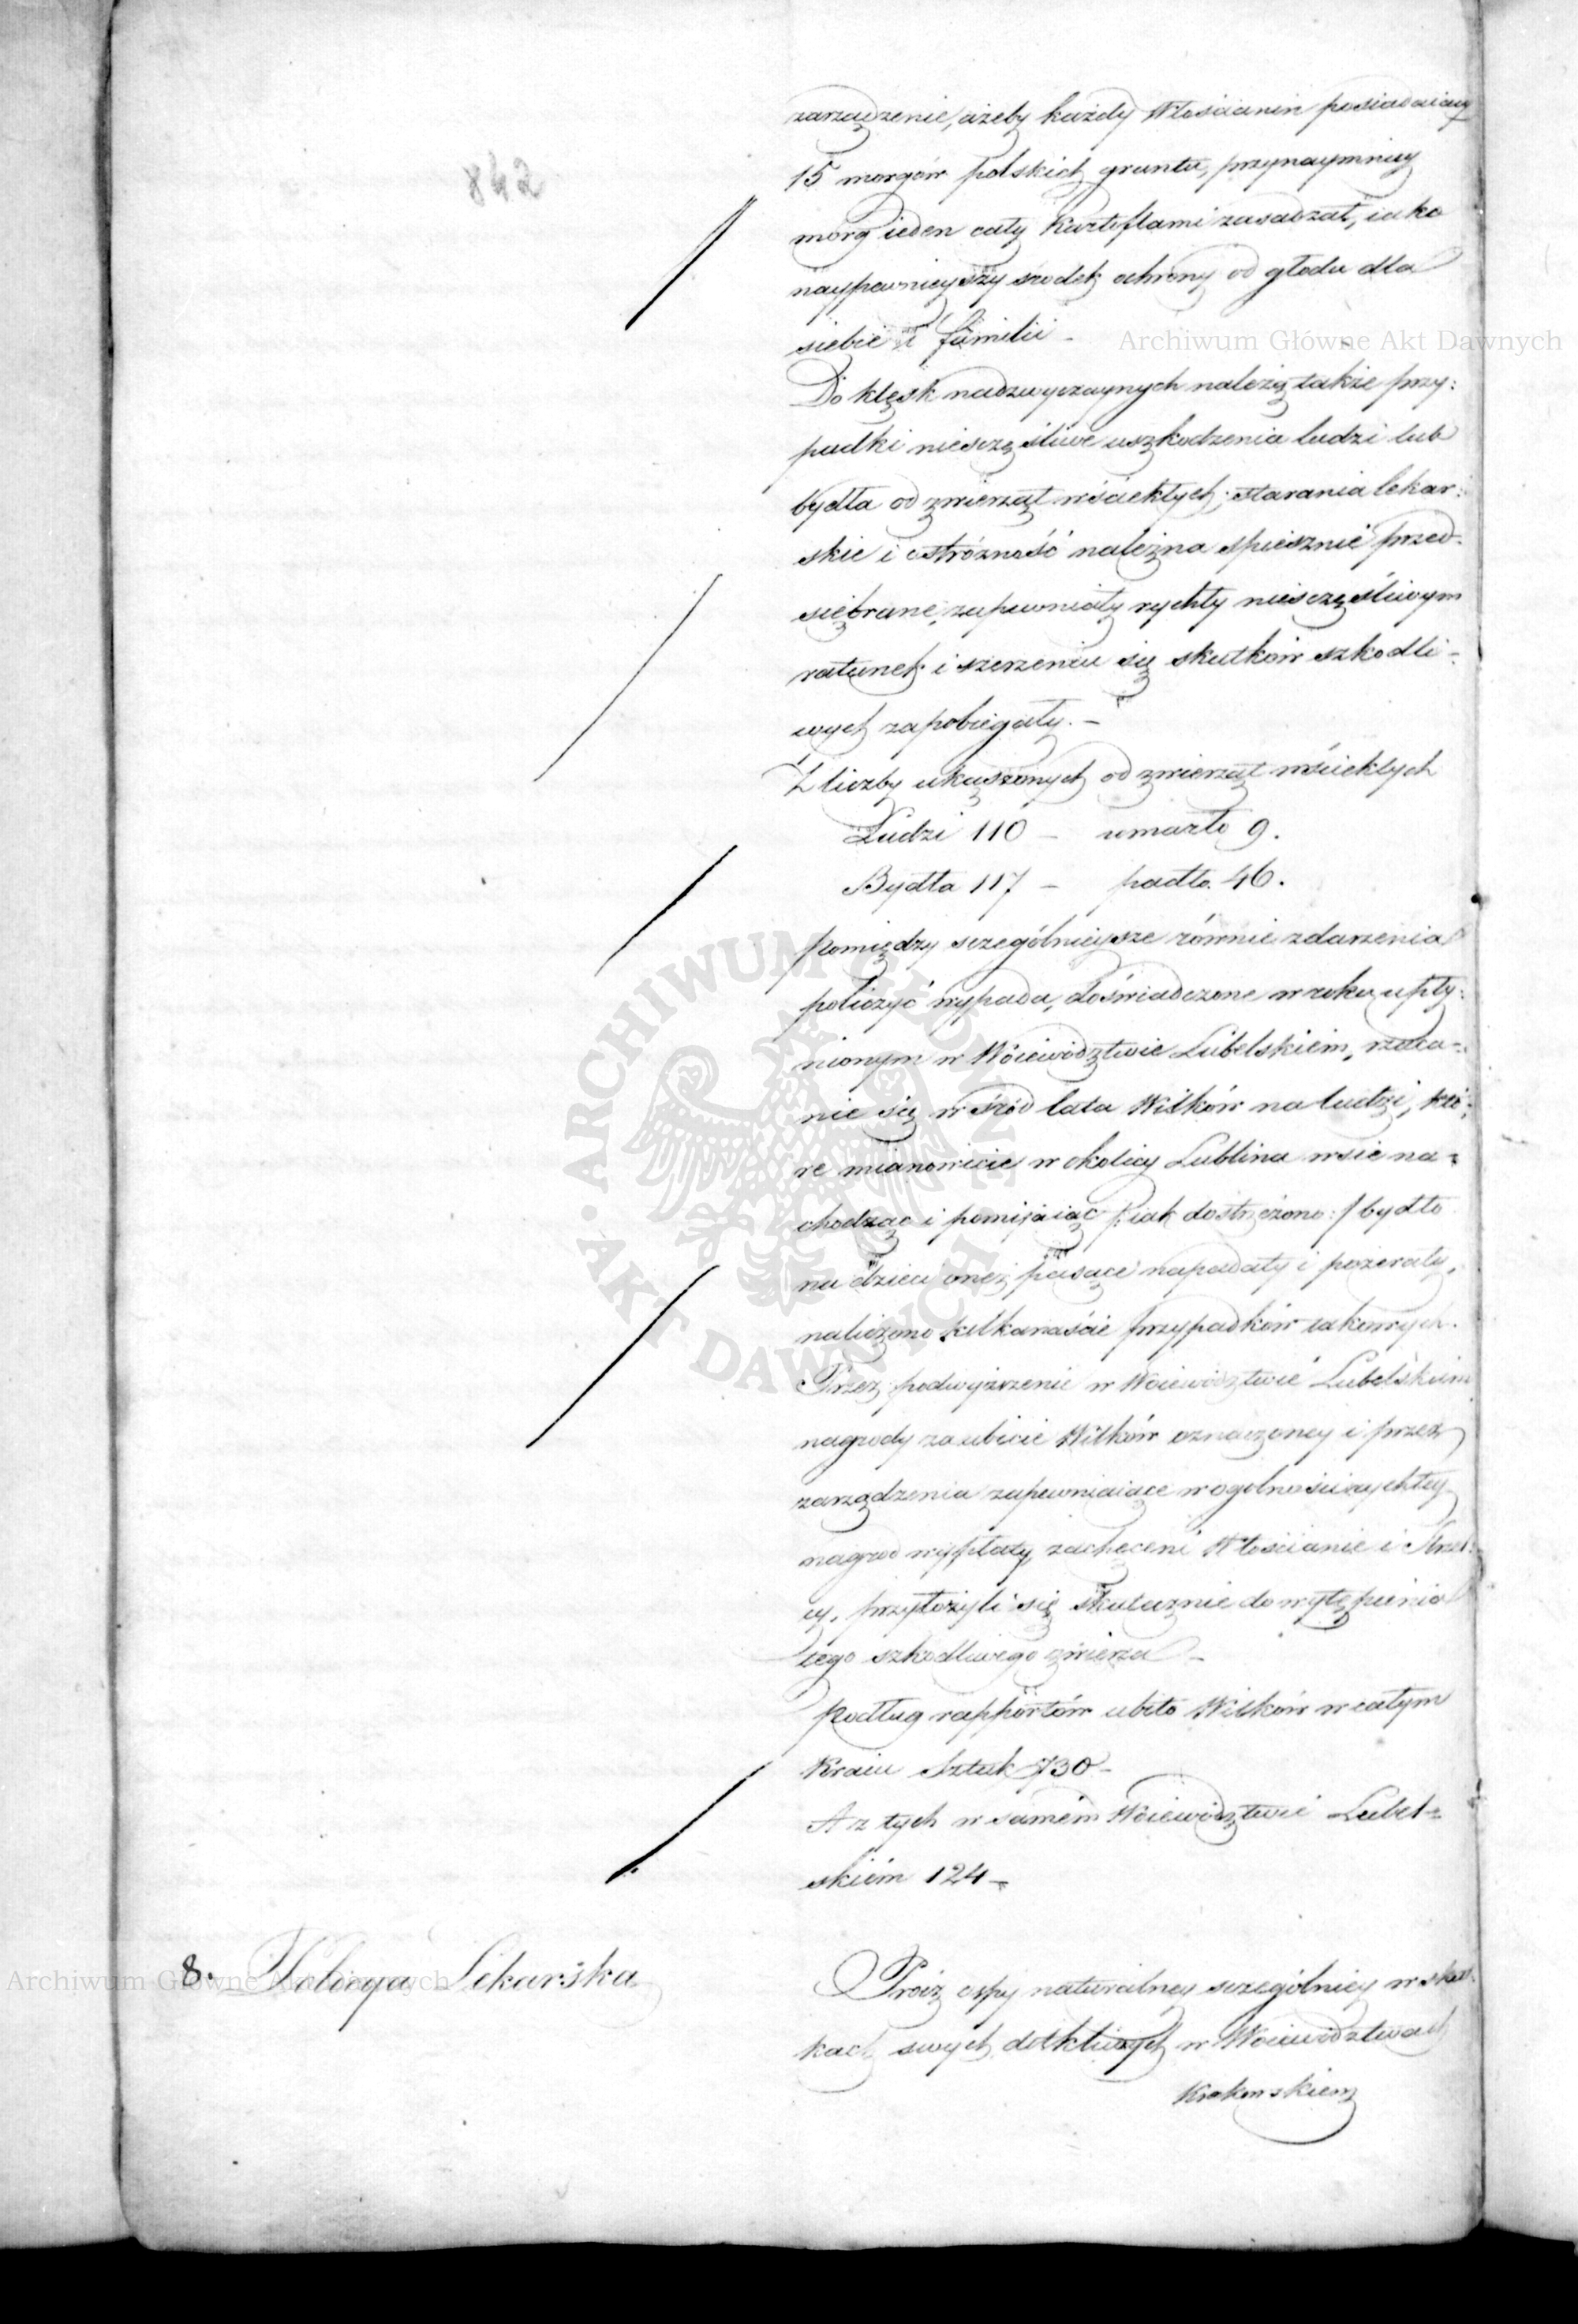 842
zarządzenie, ażeby każdy Włościanin posiadaiący
15 morgów polskich gruntu, przynaymniey
morg ieden cały Kartoflami zasadzał, iako
naypewnieyszy srodek ochrony od głodu dla
siebie i familii -
Do klęsk nadzwyczaynych należą także przy:
padki niesczęśliwe uszkodzenia ludzi lub
bydła od zwierząt wściekłych; starania lekar:
skie i ostróżność należna spiesznie przed-
siębrane, zapewniały rychły niesczęśliwym
ratunek i szerzeniu się skutków szkodli-
wych zapobiegały. -
Z liczby ukąszonych od zwierząt wściekłych
Ludzi 110 - umarło 9.
Bydła 117 - padło. 46.
Pomiędzy sczególnieysze równie zdarzenia
policzyć wypada, doświadczone w roku upły:
nionym w Woiewództwie Lubelskiem, rzuca-
nie się w śród lata Wilków na ludzi, któ:
re mianowicie w okolicy Lublina wsie na:
chodząc i pomijaiąc /: iak dostrzeżono :/ bydło
na dzieci one pasące napadały i pożerały,
naliczono kilkanaście przypadków takowych.
Przez podwyższenie w Woiewództwie Lubelskiem
nagrody za ubicie Wilków oznaczoney i przez
zarządzenia zapewniaiące w ogolności rychłey
nagrod wypłaty, zachęceni Włościanie i Strzel:
cy, przyłożyli się skutecznie do wytępienia
tego szkodliwego zwierza -
Podług rapportów ubito Wilków w całym
Kraiu Sztuk 730 -
A z tych w samém Woiewództwie Lubel-
skiém 124 -
8. Policya Lekarska
Prócz ospy naturalney sczególniey w skut:
kach swych dotkliwych w Woiewództwach
Krakowskiem
Archiwum Główne Akt Dawnych
Archiwum Główne Akt Dawnych
· ARCHIWUM GŁÓWNE · AKT DAWNYCH